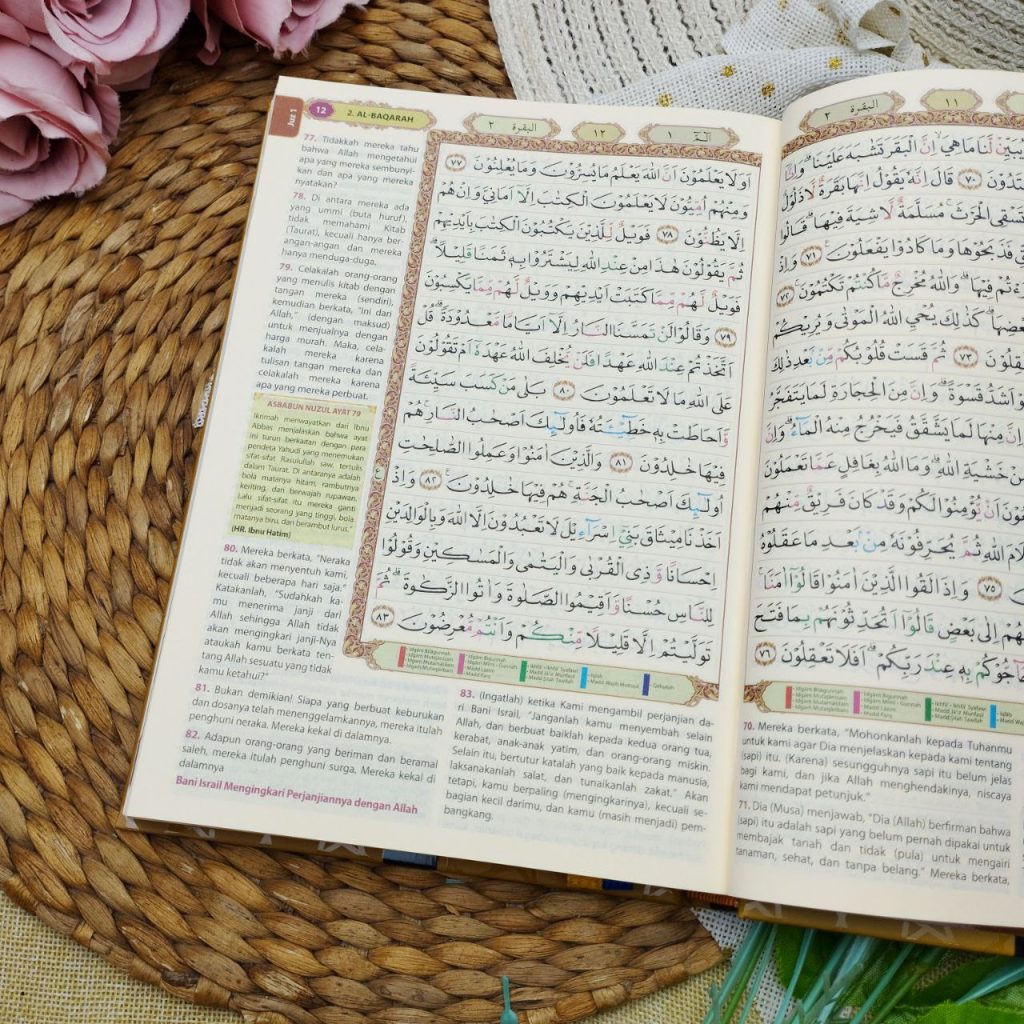 Juz 1
12
2. AL-BAQARAH
77. Tidakkah mereka tahu
bahwa Allah mengetahui
apa yang mereka sembunyi-
kan dan apa yang mereka
nyatakan?
78. Di antara mereka ada
yang ummi (buta huruf),
tidak memahami Kitab
(Taurat), kecuali hanya ber-
angan-angan dan mereka
hanya menduga-duga.
79. Celakalah orang-orang
yang menulis kitab dengan
tangan mereka (sendiri),
kemudian berkata, "Ini dari
Allah," (dengan maksud)
untuk menjualnya dengan
harga murah. Maka, cela-
kalah mereka karena
tulisan tangan mereka dan
celakalah mereka karena
apa yang mereka perbuat.
ASBABUN NUZUL AYAT 79
Ikrimah meriwayatkan dari Ibnu
Abbas menjelaskan bahwa ayat
ini turun berkaitan dengan para
pendeta Yahudi yang menemukan
sifat-sifat Rasulullah saw. tertulis
dalam Taurat. Di antaranya adalah
bola matanya hitam, rambutnya
keriting, dan berwajah rupawan.
Lalu sifat-sifat itu mereka ganti
menjadi seorang yang tinggi, bola
matanya biru, dan berambut lurus."
(HR. Ibnu Hatim)
80. Mereka berkata, "Neraka
tidak akan menyentuh kami,
kecuali beberapa hari saja."
Katakanlah, "Sudahkah ka-
mu menerima janji dari
Allah sehingga Allah tidak
akan mengingkari janji-Nya
ataukah kamu berkata ten-
tang Allah sesuatu yang tidak
kamu ketahui?"
81. Bukan demikian! Siapa yang berbuat keburukan
dan dosanya telah menenggelamkannya, mereka itulah
penghuni neraka. Mereka kekal di dalamnya.
82. Adapun orang-orang yang beriman dan beramal
saleh, mereka itulah penghuni surga. Mereka kekal di
dalamnya
Bani Israil Mengingkari Perjanjiannya dengan Allah
البقرة ٢
١٢
الۤمّۤ ١
اَوَلَا يَعْلَمُوْنَ اَنَّ اللّٰهَ يَعْلَمُ مَا يُسِرُّوْنَ وَمَا يُعْلِنُوْنَ ٧٧
وَمِنْهُمْ اُمِّيُّوْنَ لَا يَعْلَمُوْنَ الْكِتٰبَ اِلَّآ اَمَانِيَّ وَاِنْ هُمْ
اِلَّا يَظُنُّوْنَ ٧٨ فَوَيْلٌ لِّلَّذِيْنَ يَكْتُبُوْنَ الْكِتٰبَ بِاَيْدِيْهِمْ
ثُمَّ يَقُوْلُوْنَ هٰذَا مِنْ عِنْدِ اللّٰهِ لِيَشْتَرُوْا بِهٖ ثَمَنًا قَلِيْلًاۗ
فَوَيْلٌ لَّهُمْ مِّمَّا كَتَبَتْ اَيْدِيْهِمْ وَوَيْلٌ لَّهُمْ مِّمَّا يَكْسِبُوْنَ
٧٩ وَقَالُوْا لَنْ تَمَسَّنَا النَّارُ اِلَّآ اَيَّامًا مَّعْدُوْدَةًۗ قُلْ
اَتَّخَذْتُمْ عِنْدَ اللّٰهِ عَهْدًا فَلَنْ يُّخْلِفَ اللّٰهُ عَهْدَهٗٓ اَمْ تَقُوْلُوْنَ
عَلَى اللّٰهِ مَا لَا تَعْلَمُوْنَ ٨٠ بَلٰى مَنْ كَسَبَ سَيِّئَةً
وَّاَحَاطَتْ بِهٖ خَطِيْۤـَٔتُهٗ فَاُولٰۤىِٕكَ اَصْحٰبُ النَّارِۚ هُمْ
فِيْهَا خٰلِدُوْنَ ٨١ وَالَّذِيْنَ اٰمَنُوْا وَعَمِلُوا الصّٰلِحٰتِ
اُولٰۤىِٕكَ اَصْحٰبُ الْجَنَّةِۚ هُمْ فِيْهَا خٰلِدُوْنَ ٨٢ وَاِذْ
اَخَذْنَا مِيْثَاقَ بَنِيْٓ اِسْرَاۤءِيْلَ لَا تَعْبُدُوْنَ اِلَّا اللّٰهَ وَبِالْوَالِدَيْنِ
اِحْسَانًا وَّذِى الْقُرْبٰى وَالْيَتٰمٰى وَالْمَسٰكِيْنِ وَقُوْلُوْا
لِلنَّاسِ حُسْنًا وَّاَقِيْمُوا الصَّلٰوةَ وَاٰتُوا الزَّكٰوةَۗ ثُمَّ
تَوَلَّيْتُمْ اِلَّا قَلِيْلًا مِّنْكُمْ وَاَنْتُمْ مُّعْرِضُوْنَ ٨٣
83. (Ingatlah) ketika Kami mengambil perjanjian da-
ri Bani Israil, "Janganlah kamu menyembah selain
Allah, dan berbuat baiklah kepada kedua orang tua,
kerabat, anak-anak yatim, dan orang-orang miskin.
Selain itu, bertutur katalah yang baik kepada manusia,
laksanakanlah salat, dan tunaikanlah zakat." Akan
tetapi, kamu berpaling (mengingkarinya), kecuali se-
bagian kecil darimu, dan kamu (masih menjadi) pem-
bangkang.
البقرة ٢
١١
يُبَيِّنْ لَّنَا مَا هِيَۙ اِنَّ الْبَقَرَ تَشٰبَهَ عَلَيْنَاۗ وَاِنَّآ
٧٠ قَالَ اِنَّهٗ يَقُوْلُ اِنَّهَا بَقَرَةٌ لَّا ذَلُوْلٌ
تَسْقِى الْحَرْثَۚ مُسَلَّمَةٌ لَّا شِيَةَ فِيْهَاۗ قَالُوا
فَذَبَحُوْهَا وَمَا كَادُوْا يَفْعَلُوْنَ ٧١ وَاِذْ
فِيْهَاۗ وَاللّٰهُ مُخْرِجٌ مَّا كُنْتُمْ تَكْتُمُوْنَ ٧٢
كَذٰلِكَ يُحْيِ اللّٰهُ الْمَوْتٰى وَيُرِيْكُمْ
٧٣ ثُمَّ قَسَتْ قُلُوْبُكُمْ مِّنْۢ بَعْدِ ذٰلِكَ
اَشَدُّ قَسْوَةًۗ وَاِنَّ مِنَ الْحِجَارَةِ لَمَا يَتَفَجَّرُ
وَاِنَّ مِنْهَا لَمَا يَشَّقَّقُ فَيَخْرُجُ مِنْهُ الْمَاۤءُۗ وَاِنَّ
مِنْ خَشْيَةِ اللّٰهِۗ وَمَا اللّٰهُ بِغَافِلٍ عَمَّا تَعْمَلُوْنَ
اَنْ يُّؤْمِنُوْا لَكُمْ وَقَدْ كَانَ فَرِيْقٌ مِّنْهُمْ
اللّٰهِ ثُمَّ يُحَرِّفُوْنَهٗ مِنْۢ بَعْدِ مَا عَقَلُوْهُ
٧٥ وَاِذَا لَقُوا الَّذِيْنَ اٰمَنُوْا قَالُوْٓا اٰمَنَّاۚ
اِلٰى بَعْضٍ قَالُوْٓا اَتُحَدِّثُوْنَهُمْ بِمَا فَتَحَ
بِهٖ عِنْدَ رَبِّكُمْۗ اَفَلَا تَعْقِلُوْنَ ٧٦
70. Mereka berkata, "Mohonkanlah kepada Tuhanmu
untuk kami agar Dia menjelaskan kepada kami tentang
(sapi) itu. (Karena) sesungguhnya sapi itu belum jelas
bagi kami, dan jika Allah menghendakinya, niscaya
kami mendapat petunjuk."
71. Dia (Musa) menjawab, "Dia (Allah) berfirman bahwa
(sapi) itu adalah sapi yang belum pernah dipakai untuk
membajak tanah dan tidak (pula) untuk mengairi
tanaman, sehat, dan tanpa belang." Mereka berkata,